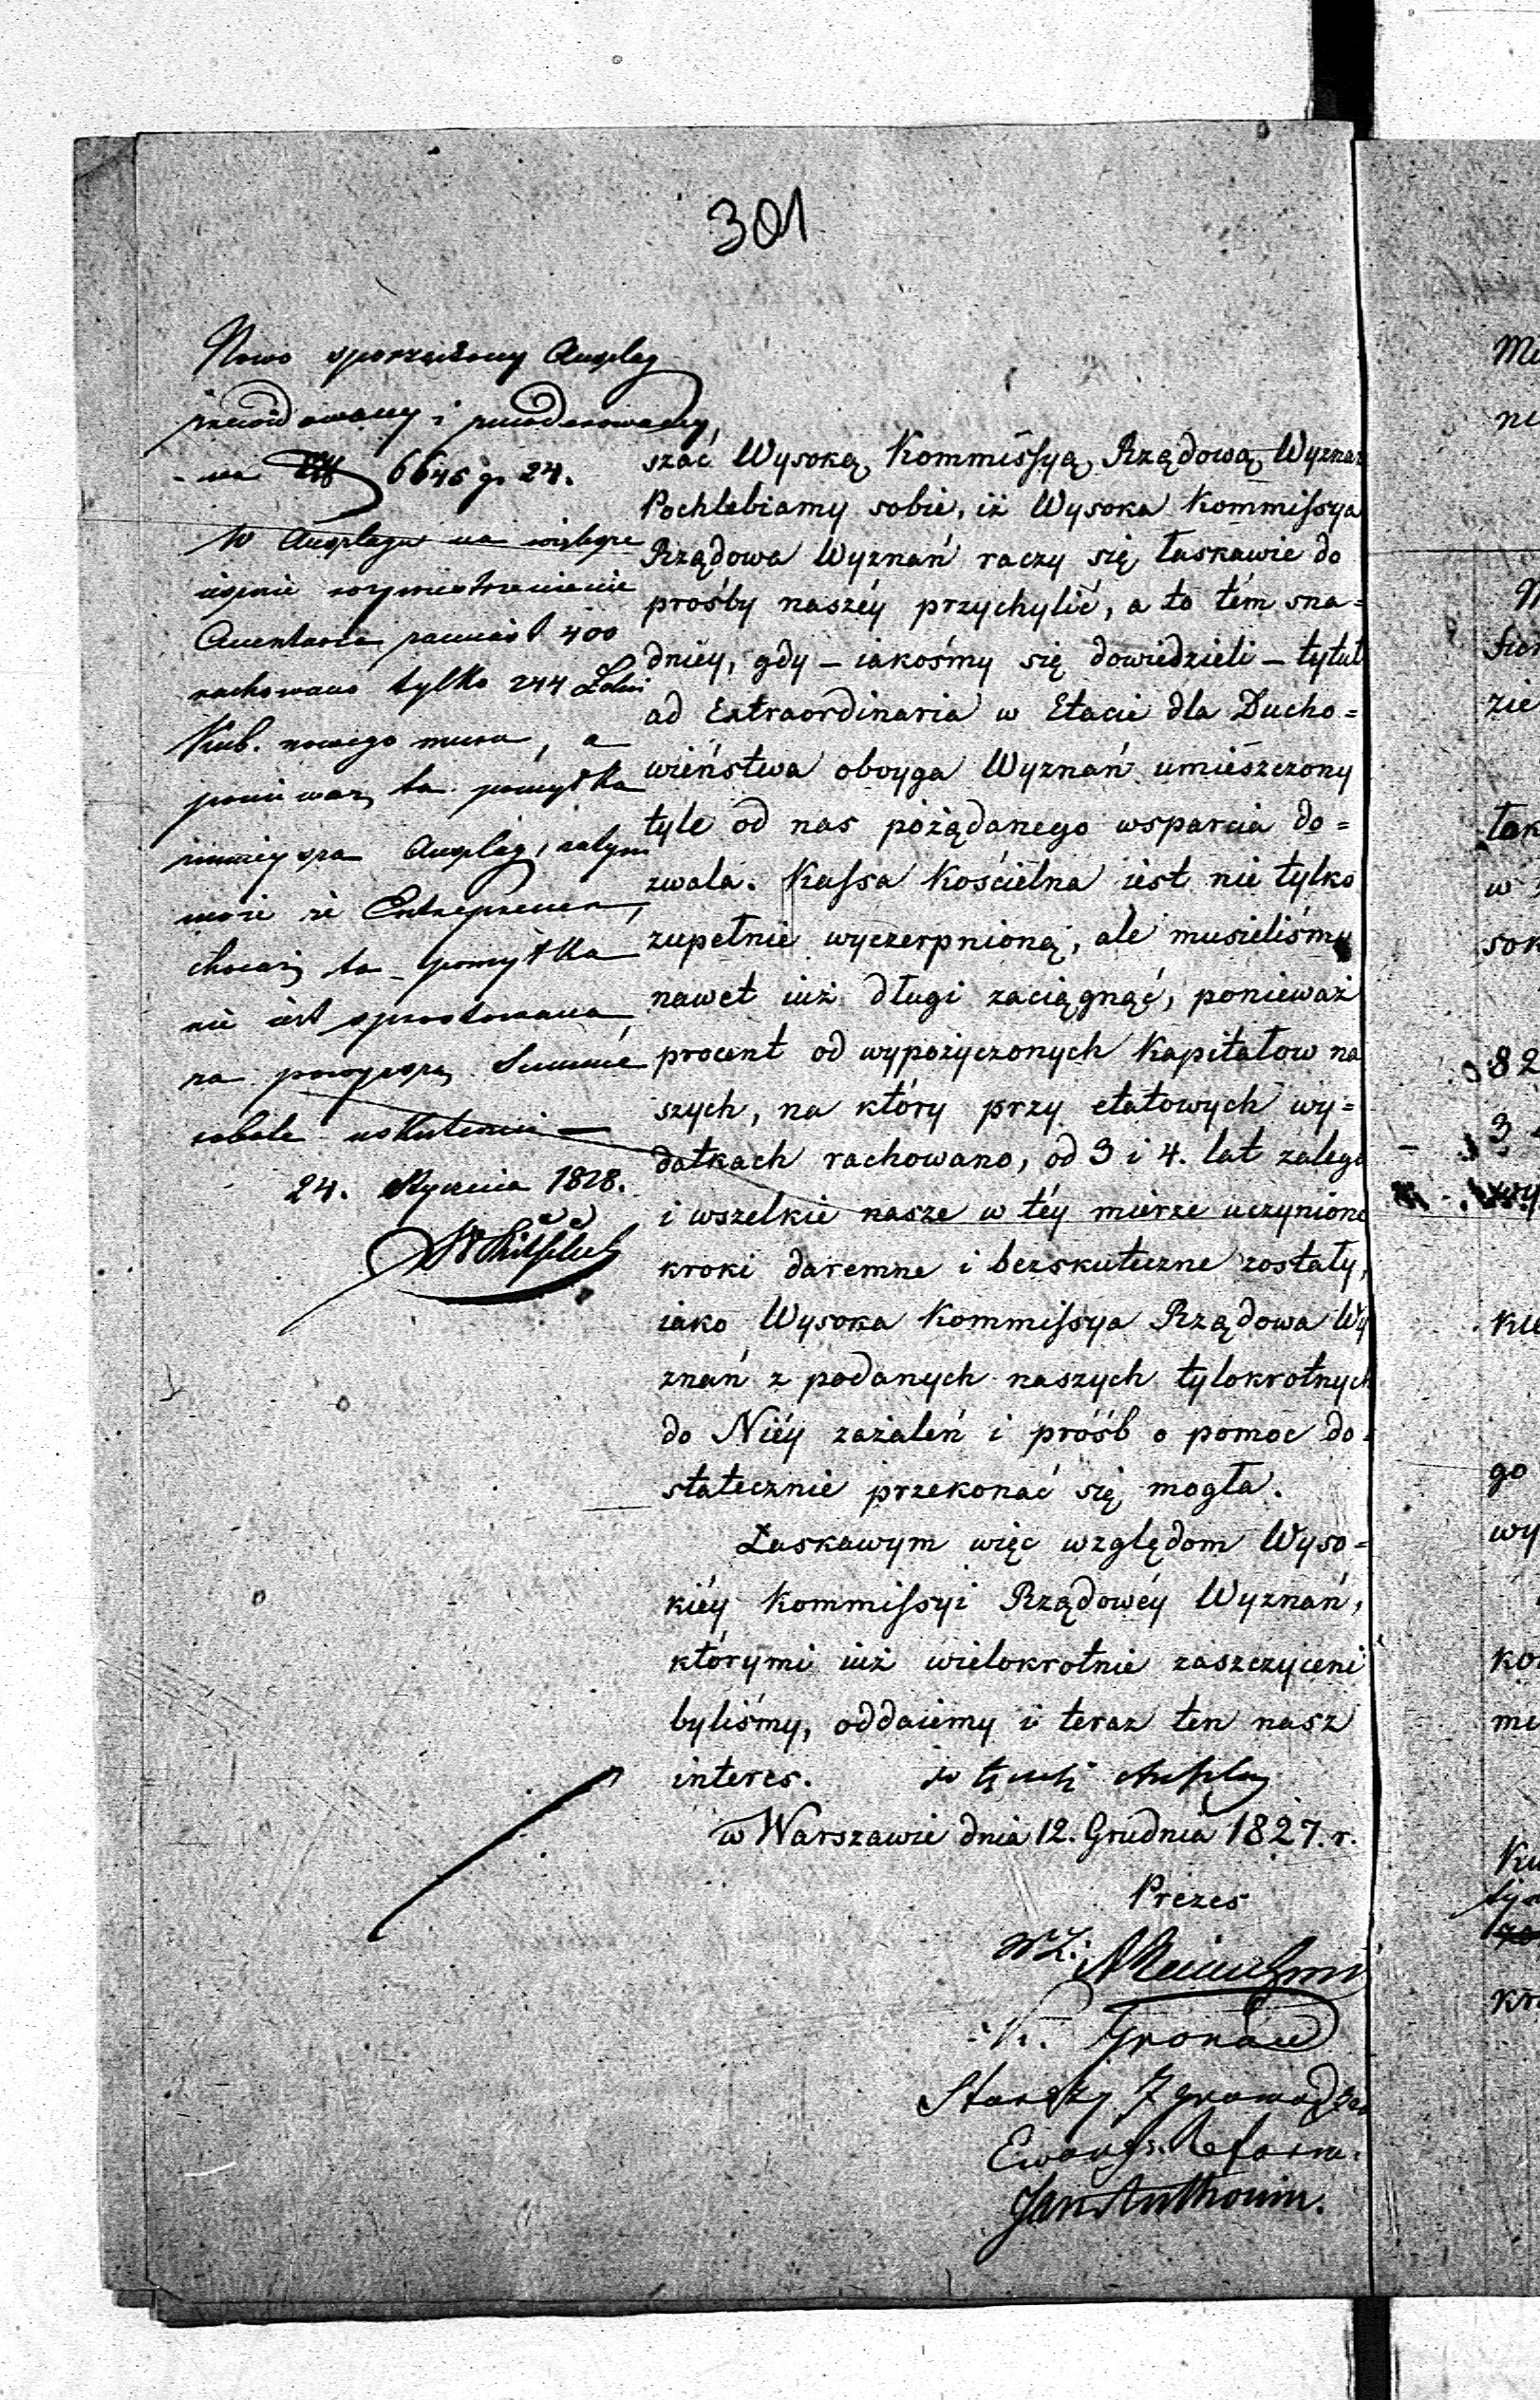 301
Nowo sporządzony Anszlag
i
na 6645 gr 24.
w Anszlagu na
Cmentarza zamiast 400
rachowano tylko 244 Łokci
Kub. nowego muru, a
ponieważ ta pomyłka
Anszlag, zatym
może że Entreprener,
chociaż ta pomyłka
nie iest sprostowana
za powyższą Summę
24. Stycznia 1828.
szać Wysoką Kommissyą Rządową Wyznań
Pochlebiamy sobie, iż Wysoka Kommissya
Rządowa Wyznań raczy się łaskawie do
prośby naszéy przychylić, a to tém sna=
dniey, gdy – iakośmy się dowiedzieli – tytuł
ad Extraordinaria w Etacie dla Ducho=
wieństwa obuyga Wyznań umieszczony
tyle od nas pożądanego wsparcia do=
zwala. Kassa Kościelna iest nie tylko
zupełnie wyczerpnioną, ale musieliśmy
nawet iuż długi zaciągnąć, ponieważ
procent od wypożyczonych Kapitałow na
szych, na który przy etatowych wy=
datkach rachowano, od 3 i 4. lat zalega
i wszelkie nasze w téy mierze uczynione
kroki daremne i bezskuteczne zostały,
iako Wysoka Kommissya Rządowa Wy
znań z podanych naszych tylokrotnych
do Niéy zażaleń i próśb o pomoc do=
statecznie przekonać się mogła.
Łaskawym więc względom Wyso=
kiéy Kommissyi Rządowéy Wyznań,
którymi iuż wielokrotnie zaszczyceni
byliśmy, oddaiemy i teraz ten nasz
interes.
w Warszawie dnia 12. Grudnia 1827. r.
Prezes
W Z.
Gronau
Starszy Zgromadze
Ewang. Reform.
Jan Anthonin.